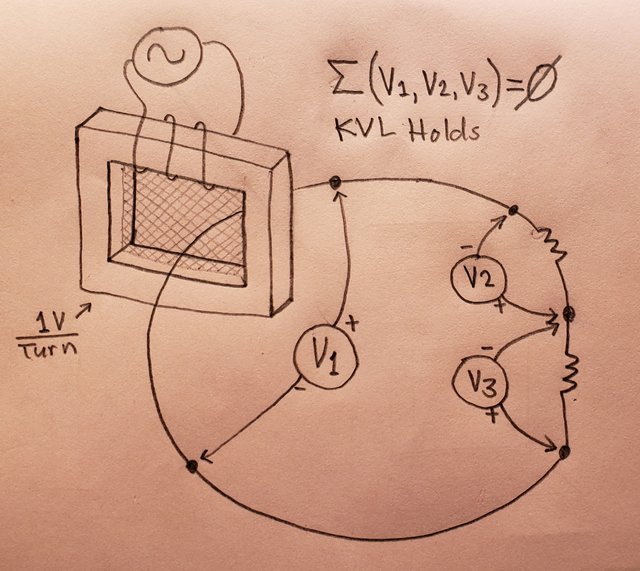 Σ(V1, V2, V3)=∅
KVL Holds
-
V2
+
1V
Turn
+
V1
-
-
V3
+